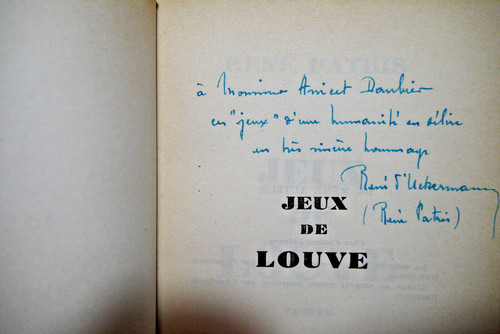 à Monsieur Anicet Daubier
ces "jeux" d'une humanité en délire
en très sincère hommage
René d'Uckermann
(René Patris)
JEUX
DE
LOUVE
RENÉ PATRIS